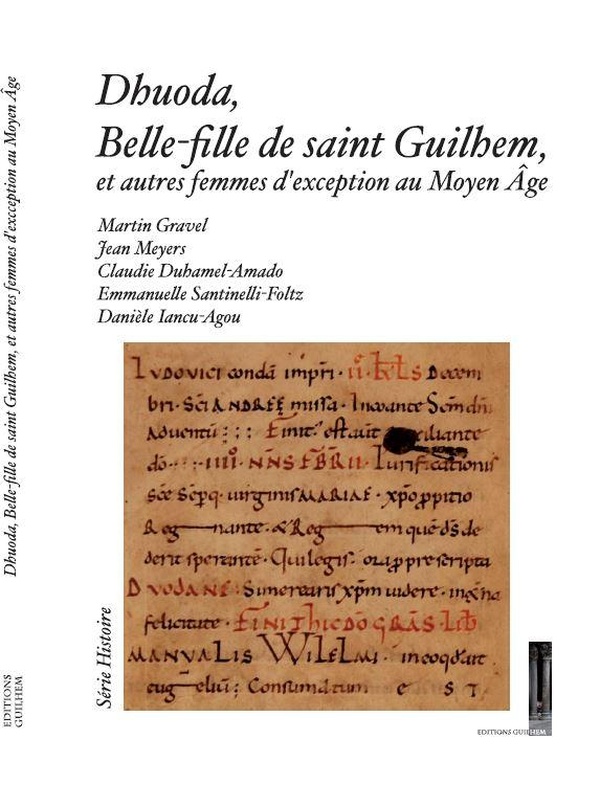 Dhuoda,
Belle-fille de saint Guilhem,
et autres femmes d'exception au Moyen Âge
Martin Gravel
Jean Meyers
Claudie Duhamel-Amado
Emmanuelle Santinelli-Foltz
Danièle Iancu-Agou
LUDOVICI condā imp̄ri · IIº · kt̄ls Decem
bri · Sc̄i ANDREĘ missa · Incoante Scm̄ dn̄i
Adventū : : : Finit ē aut
dō IIIIº · NN̄S FB̄RII · Purificationis
sc̄e Sēpq̄ · virginis MARIAE · xp̄o ppitio
Reg nante · & Reg em quē d̄s de
derit sperantē · Qui legis · ora p prescripta
DUODANE · Si merearis xp̄m videre · in
felicitate · FINIT HIC DŌ GRĀS LIB
MANVALIS WILELMI ·
eug eliū : Consumatum e s t
Série Histoire
EDITIONS GUILHEM
Dhuoda, Belle-fille de saint Guilhem, et autres femmes d'excception au Moyen Âge
EDITIONS
GUILHEM